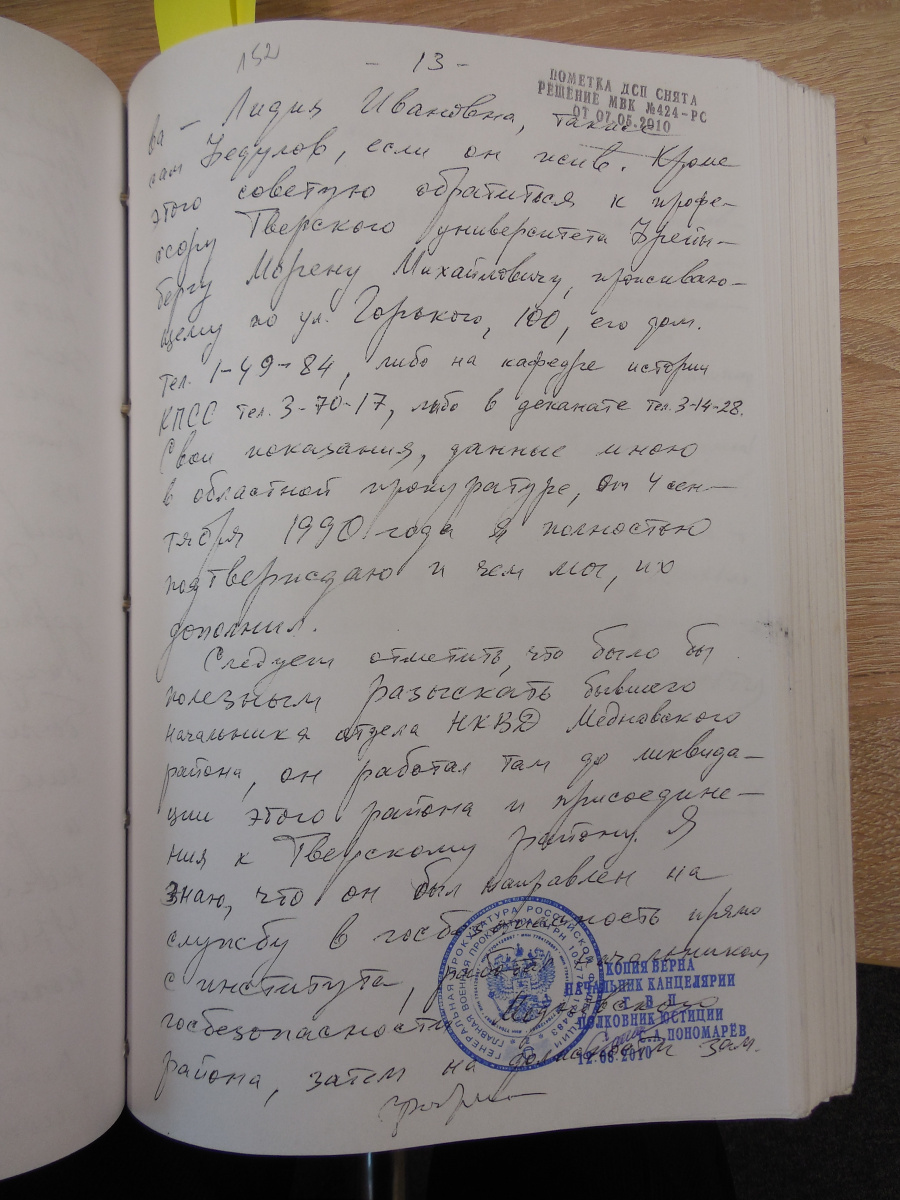 152
- 13 -
ПОМЕТКА ДСП СНЯТА
РЕШЕНИЕ МВК №424-РС
ОТ 07.05.2010
ва – Лидия Ивановна, также
сам Федулов, если он жив. Кроме
этого советую обратиться к профе-
ссору Тверского университета Фрейн-
бергу Морену Михайловичу, проживаю-
щему по ул. Горького, 100, его дом.
тел. 1-49-84, либо на кафедре истории
КПСС тел. 3-70-17, либо в деканате тел. 3-14-28.
Свои показания, данные мною
в областной прокуратуре, от 4 сен-
тября 1990 года я полностью
подтверждаю и чем мог, их
дополнил.
Следует отметить, что было бы
полезным разыскать бывшего
начальника отдела НКВД Медновского
района, он работал там до ликвида-
ции этого района и присоедине-
ния к Тверскому району. Я
знаю, что он был направлен на
службу в госбезопасность прямо
с института, работал начальником
госбезопасности Медновского
района, затем на должности зам.
КОПИЯ ВЕРНА
НАЧАЛЬНИК КАНЦЕЛЯРИИ
Г В П
ПОЛКОВНИК ЮСТИЦИИ
С.А ПОНОМАРЁВ
2010
ГЕНЕРАЛЬНАЯ ПРОКУРАТУРА РОССИЙСКОЙ ФЕДЕРАЦИИ
ГЛАВНАЯ ВОЕННАЯ ПРОКУРАТУРА